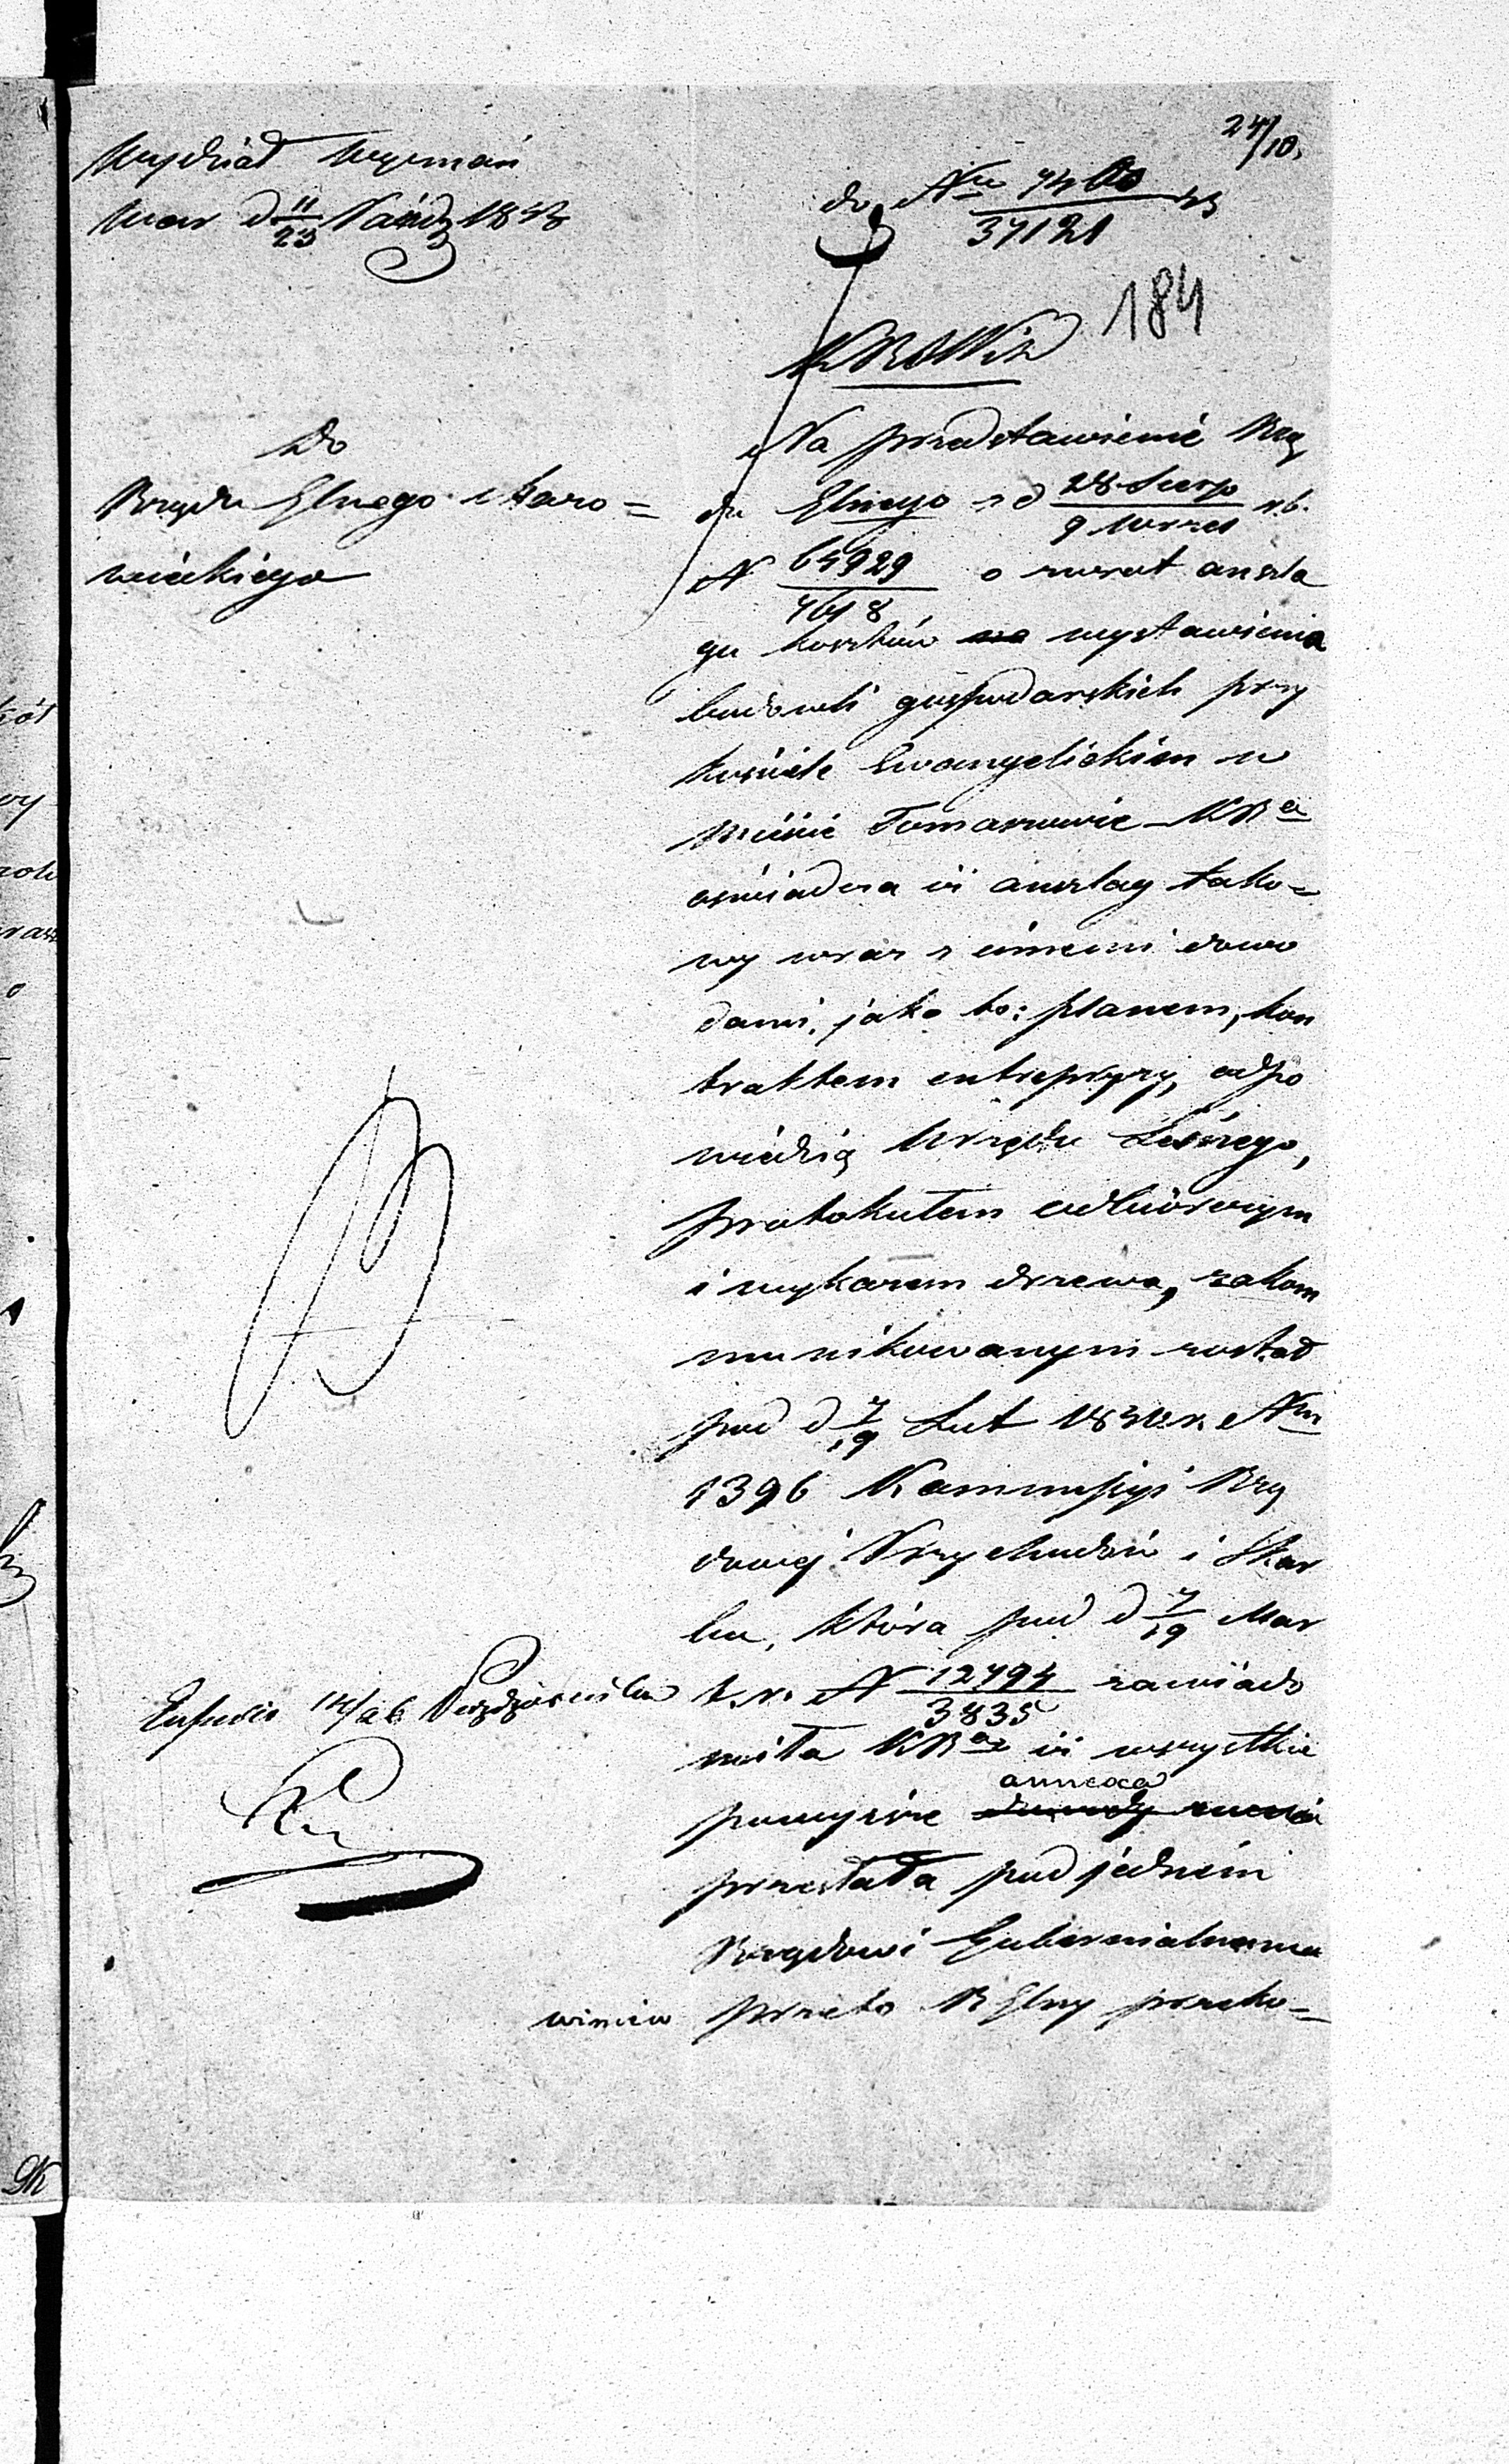 24/10.
Wydział Wyznań
War d 11/23 Paźdz 1843
do Nru 7460/37121 43
184
KRSWiD
Do
Rządu Glnego Mazo=
wieckiego
Na przedstawienie Rzą
du Glnego z d 28 Sierp/9 Wrześ r.b.
N 64929/7618 o zwrot anszla
gu kosztów na wystawienia
budowli gospodarskich przy
kościele Ewangelickim w
mieście Tomaszowie KRa
oświadcza iż anszlag tako=
wy wraz z innemi dowo
dami, jako to: planem, kon
traktem entrepryzy, odpo
wiedzią Urzędu Leśnego,
protokułem odbiorczym
i wykazem drzewa, zakom
munikowanym został
pod d 7/19 Lut Nru
1396 Kommissyi Rzą
dowej Przychodów i Skar
bu, która pod d 7/19 Mar
t.r. N 12794/3835 zawiado
miła KRa iż wszystkie
powyższe annexa dowody
przesłała pod jednem
Rządowi Gubernialnemu
przeto R Glny przeko=
winien
14/26 Października